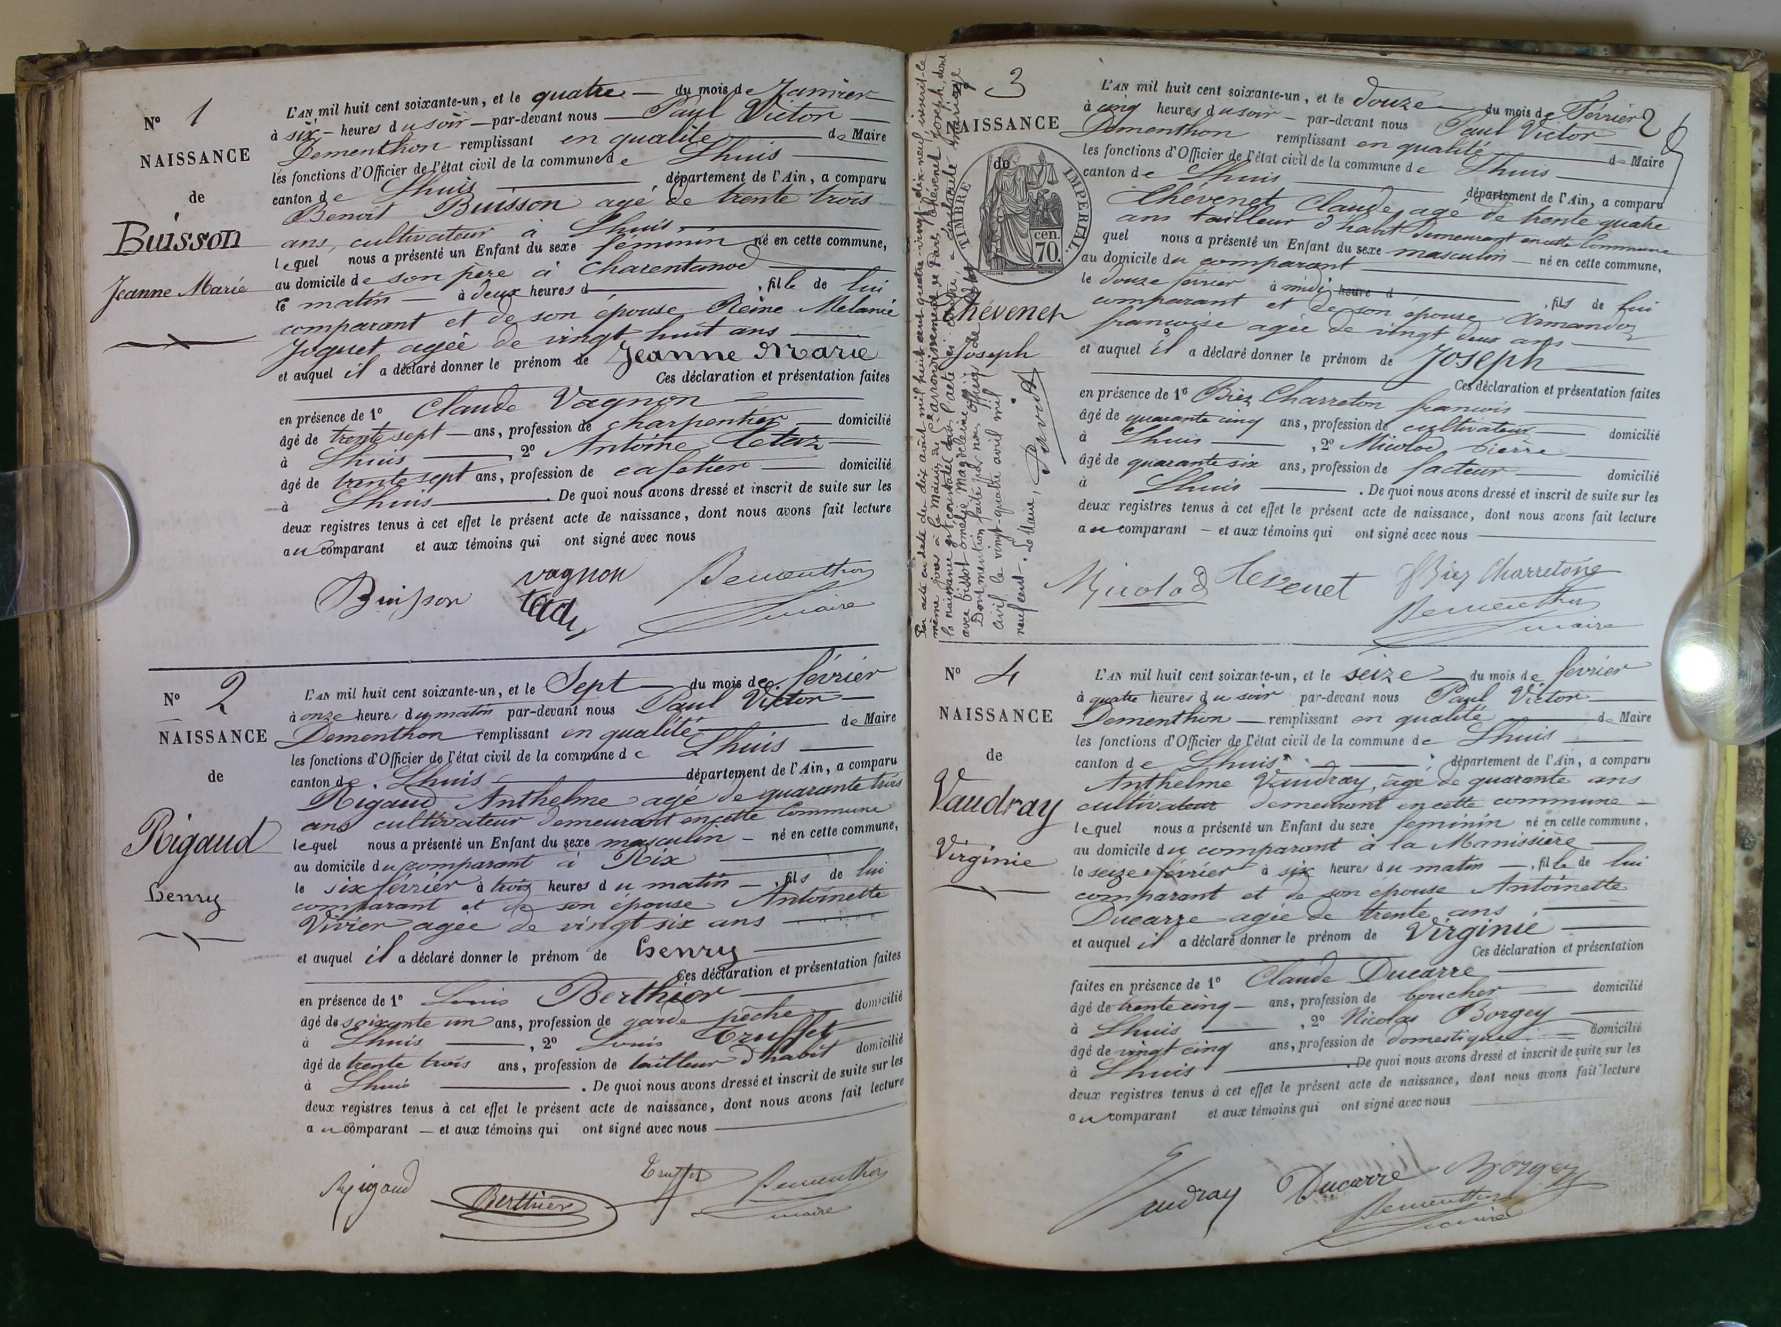 N° 1
NAISSANCE
de
Buisson
Jeanne Marie
L'AN mil huit cent soixante-un, et le quatre du mois de Janvier
à six heures du soir par-devant nous Paul Victor
Dementhon remplissant en qualité de Maire
les fonctions d'Officier de l'état civil de la commune de Lhuis
canton de Lhuis département de l'Ain, a comparu
Benoit Buisson agé de trente trois
ans, cultivateur à Lhuis,
lequel nous a présenté un Enfant du sexe feminin né en cette commune,
au domicile de son père à
le matin à deux heures d , fille de lui
comparant et de son épouse Reine Melanie
Joguet agée de vingt huit ans
et auquel il a déclaré donner le prénom de Jeanne Marie
Ces déclaration et présentation faites
en présence de 1° Claude Vagnon
âgé de trente sept ans, profession de charpentier domicilié
à Lhuis , 2° Antoine
âgé de trente sept ans, profession de cafetier domicilié
à Lhuis . De quoi nous avons dressé et inscrit de suite sur les
deux registres tenus à cet effet le présent acte de naissance, dont nous avons fait lecture
au comparant et aux témoins qui ont signé avec nous
Buisson vagnon Dementhon
maire
N° 2
NAISSANCE
de
Rigaud
henry
L'AN mil huit cent soixante-un, et le Sept du mois de février
à onze heure du matin par-devant nous Paul Victor
Dementhon remplissant en qualité de Maire
les fonctions d'Officier de l'état civil de la commune de Lhuis
canton de Lhuis département de l'Ain, a comparu
Rigaud Anthelme agé de quarante trois
ans cultivateur demeurant en cette Commune
lequel nous a présenté un Enfant du sexe masculin né en cette commune,
au domicile du comparant à Rix
le six février à trois heures du matin , fils de lui
comparant et de son épouse Antoinette
Vivier agée de vingt six ans
et auquel il a déclaré donner le prénom de henry
Ces déclaration et présentation faites
en présence de 1° Louis Berthier
âgé de soixante un ans, profession de garde pèche domicilié
à Lhuis , 2° Louis Truffet
âgé de trente trois ans, profession de tailleur d'habit domicilié
à Lhuis . De quoi nous avons dressé et inscrit de suite sur les
deux registres tenus à cet effet le présent acte de naissance, dont nous avons fait lecture
au comparant et aux témoins qui ont signé avec nous
Rigaud Berthier Truffet Dementhon
maire
2
3
NAISSANCE
de
TIMBRE IMPERIAL
70 cen.
Chévenet
Joseph
Par acte en date du dix août mil huit cent quatre-vingt-dix-neuf inscrit le
même jour à la Mairie du arrondissement de Paris, Chévenet Joseph, dont
la naissance est constatée dans l'acte ci contre, a contracté mariage
avec Magdeleine
Dont mention faite par nous officier de l'état
civil le vingt-quatre avril mil
neuf cent. Le Maire,
L'AN mil huit cent soixante-un, et le douze du mois de Février
à cinq heures du soir par-devant nous Paul Victor
Dementhon remplissant en qualité de Maire
les fonctions d'Officier de l'état civil de la commune de Lhuis
canton de Lhuis département de l'Ain, a comparu
Chévenet Claude agé de trente quatre
ans tailleur d'habit demeurant en cette Commune
quel nous a présenté un Enfant du sexe masculin né en cette commune,
au domicile du comparant
le douze février à midi heure d , fils de lui
comparant et de son épouse
françoise agée de vingt deux ans
et auquel il a déclaré donner le prénom de Joseph
Ces déclaration et présentation faites
en présence de 1° Briez Charreton françois
âgé de quarante cinq ans, profession de cultivateur domicilié
à Lhuis , 2° Micolod pierre
âgé de quarante six ans, profession de facteur domicilié
à Lhuis . De quoi nous avons dressé et inscrit de suite sur les
deux registres tenus à cet effet le présent acte de naissance, dont nous avons fait lecture
au comparant et aux témoins qui ont signé avec nous
Micolod Dementhon
maire
N° 4
NAISSANCE
de
Vaudray
Virginie
L'AN mil huit cent soixante-un, et le seize du mois de fevrier
à quatre heures du soir par-devant nous Paul Victor
Dementhon remplissant en qualité de Maire
les fonctions d'Officier de l'état civil de la commune de Lhuis
canton de Lhuis département de l'Ain, a comparu
Anthelme Vaudray, agé de quarante ans
cultivateur demeurant en cette commune
lequel nous a présenté un Enfant du sexe feminin né en cette commune,
au domicile du comparant à la Manissière
le seize février à six heures du matin , fille de lui
comparant et de son epouse Antoinette
Ducarre agée de trente ans
et auquel il a déclaré donner le prénom de Virginie
Ces déclaration et présentation
faites en présence de 1° Claude Ducarre
âgé de trente cinq ans, profession de boucher domicilié
à Lhuis , 2° Nicolas Borgey
âgé de vingt cinq ans, profession de domestique domicilié
à Lhuis De quoi nous avons dressé et inscrit de suite sur les
deux registres tenus à cet effet le présent acte de naissance, dont nous avons fait lecture
au comparant et aux témoins qui ont signé avec nous
Vaudray Ducarre Borgey
Dementhon
maire